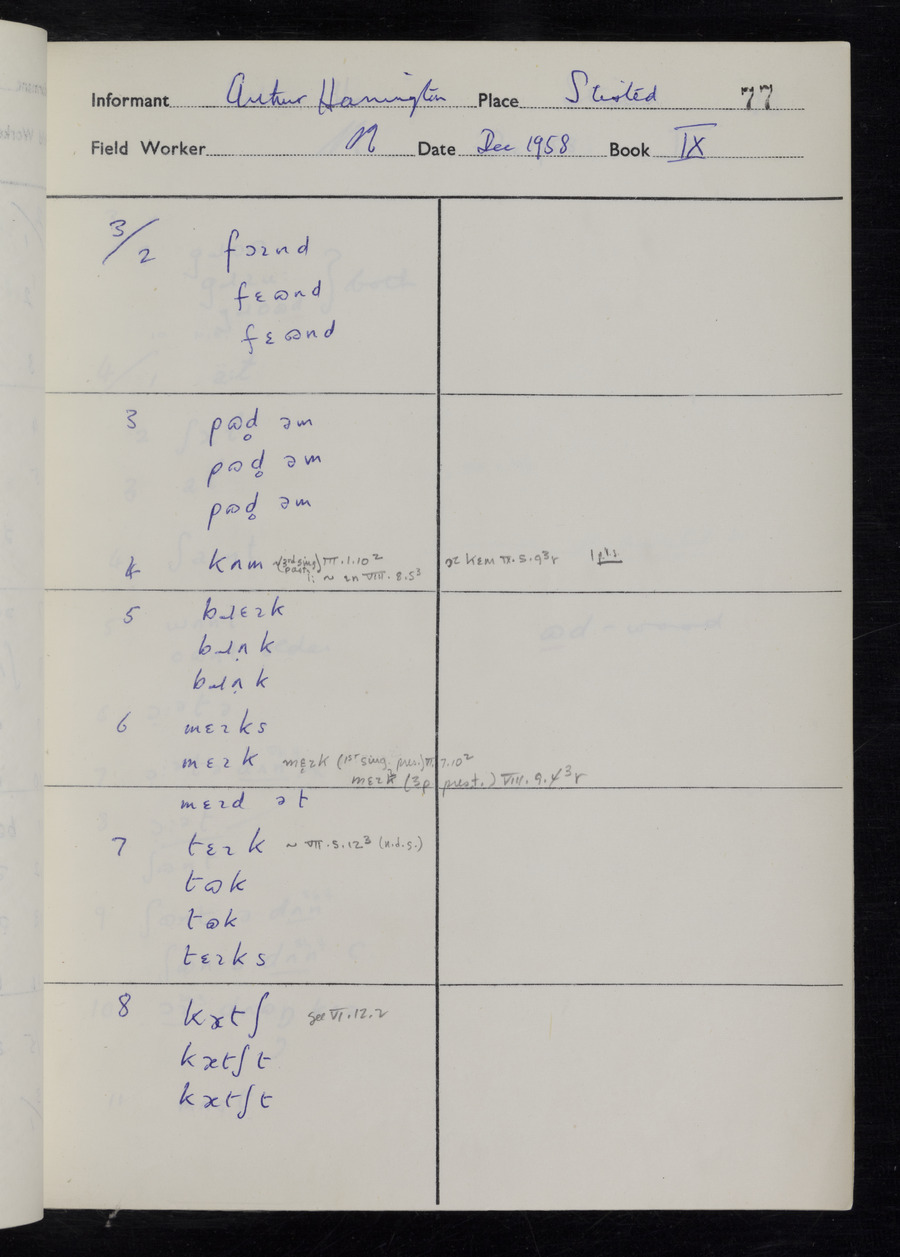 Informant Arthur Harrington Place Stisted 77
Field Worker N Date Dec 1958 Book IX
3/2 fɔɪnd
fɛɷnd
fɛɷnd
3 pɷd̥ əm
pɷd̥ əm
pɷd̥ əm
4 kʌm ~ (3rd sing past) VII.1.10² ɔɪ kɛm VI.5.9³r 1 pl.
i: ~ ɪn VIII.8.5³
5 bɹɛɪk
bɹʌ̣k
bɹʌ̣k
6 mɛɪks
mɛɪk mɛ̣ɪk (1st sing. pres.) VI.7.10²
mɛɪk (3 p pret.) VIII.9.4³r
mɛɪd ət
7 tɛɪk ~ VII.5.12³ (n.d.s.)
tɷk
tɷk
tɛɪks
8 kætʃ see VI.12.2
kætʃt
kætʃt